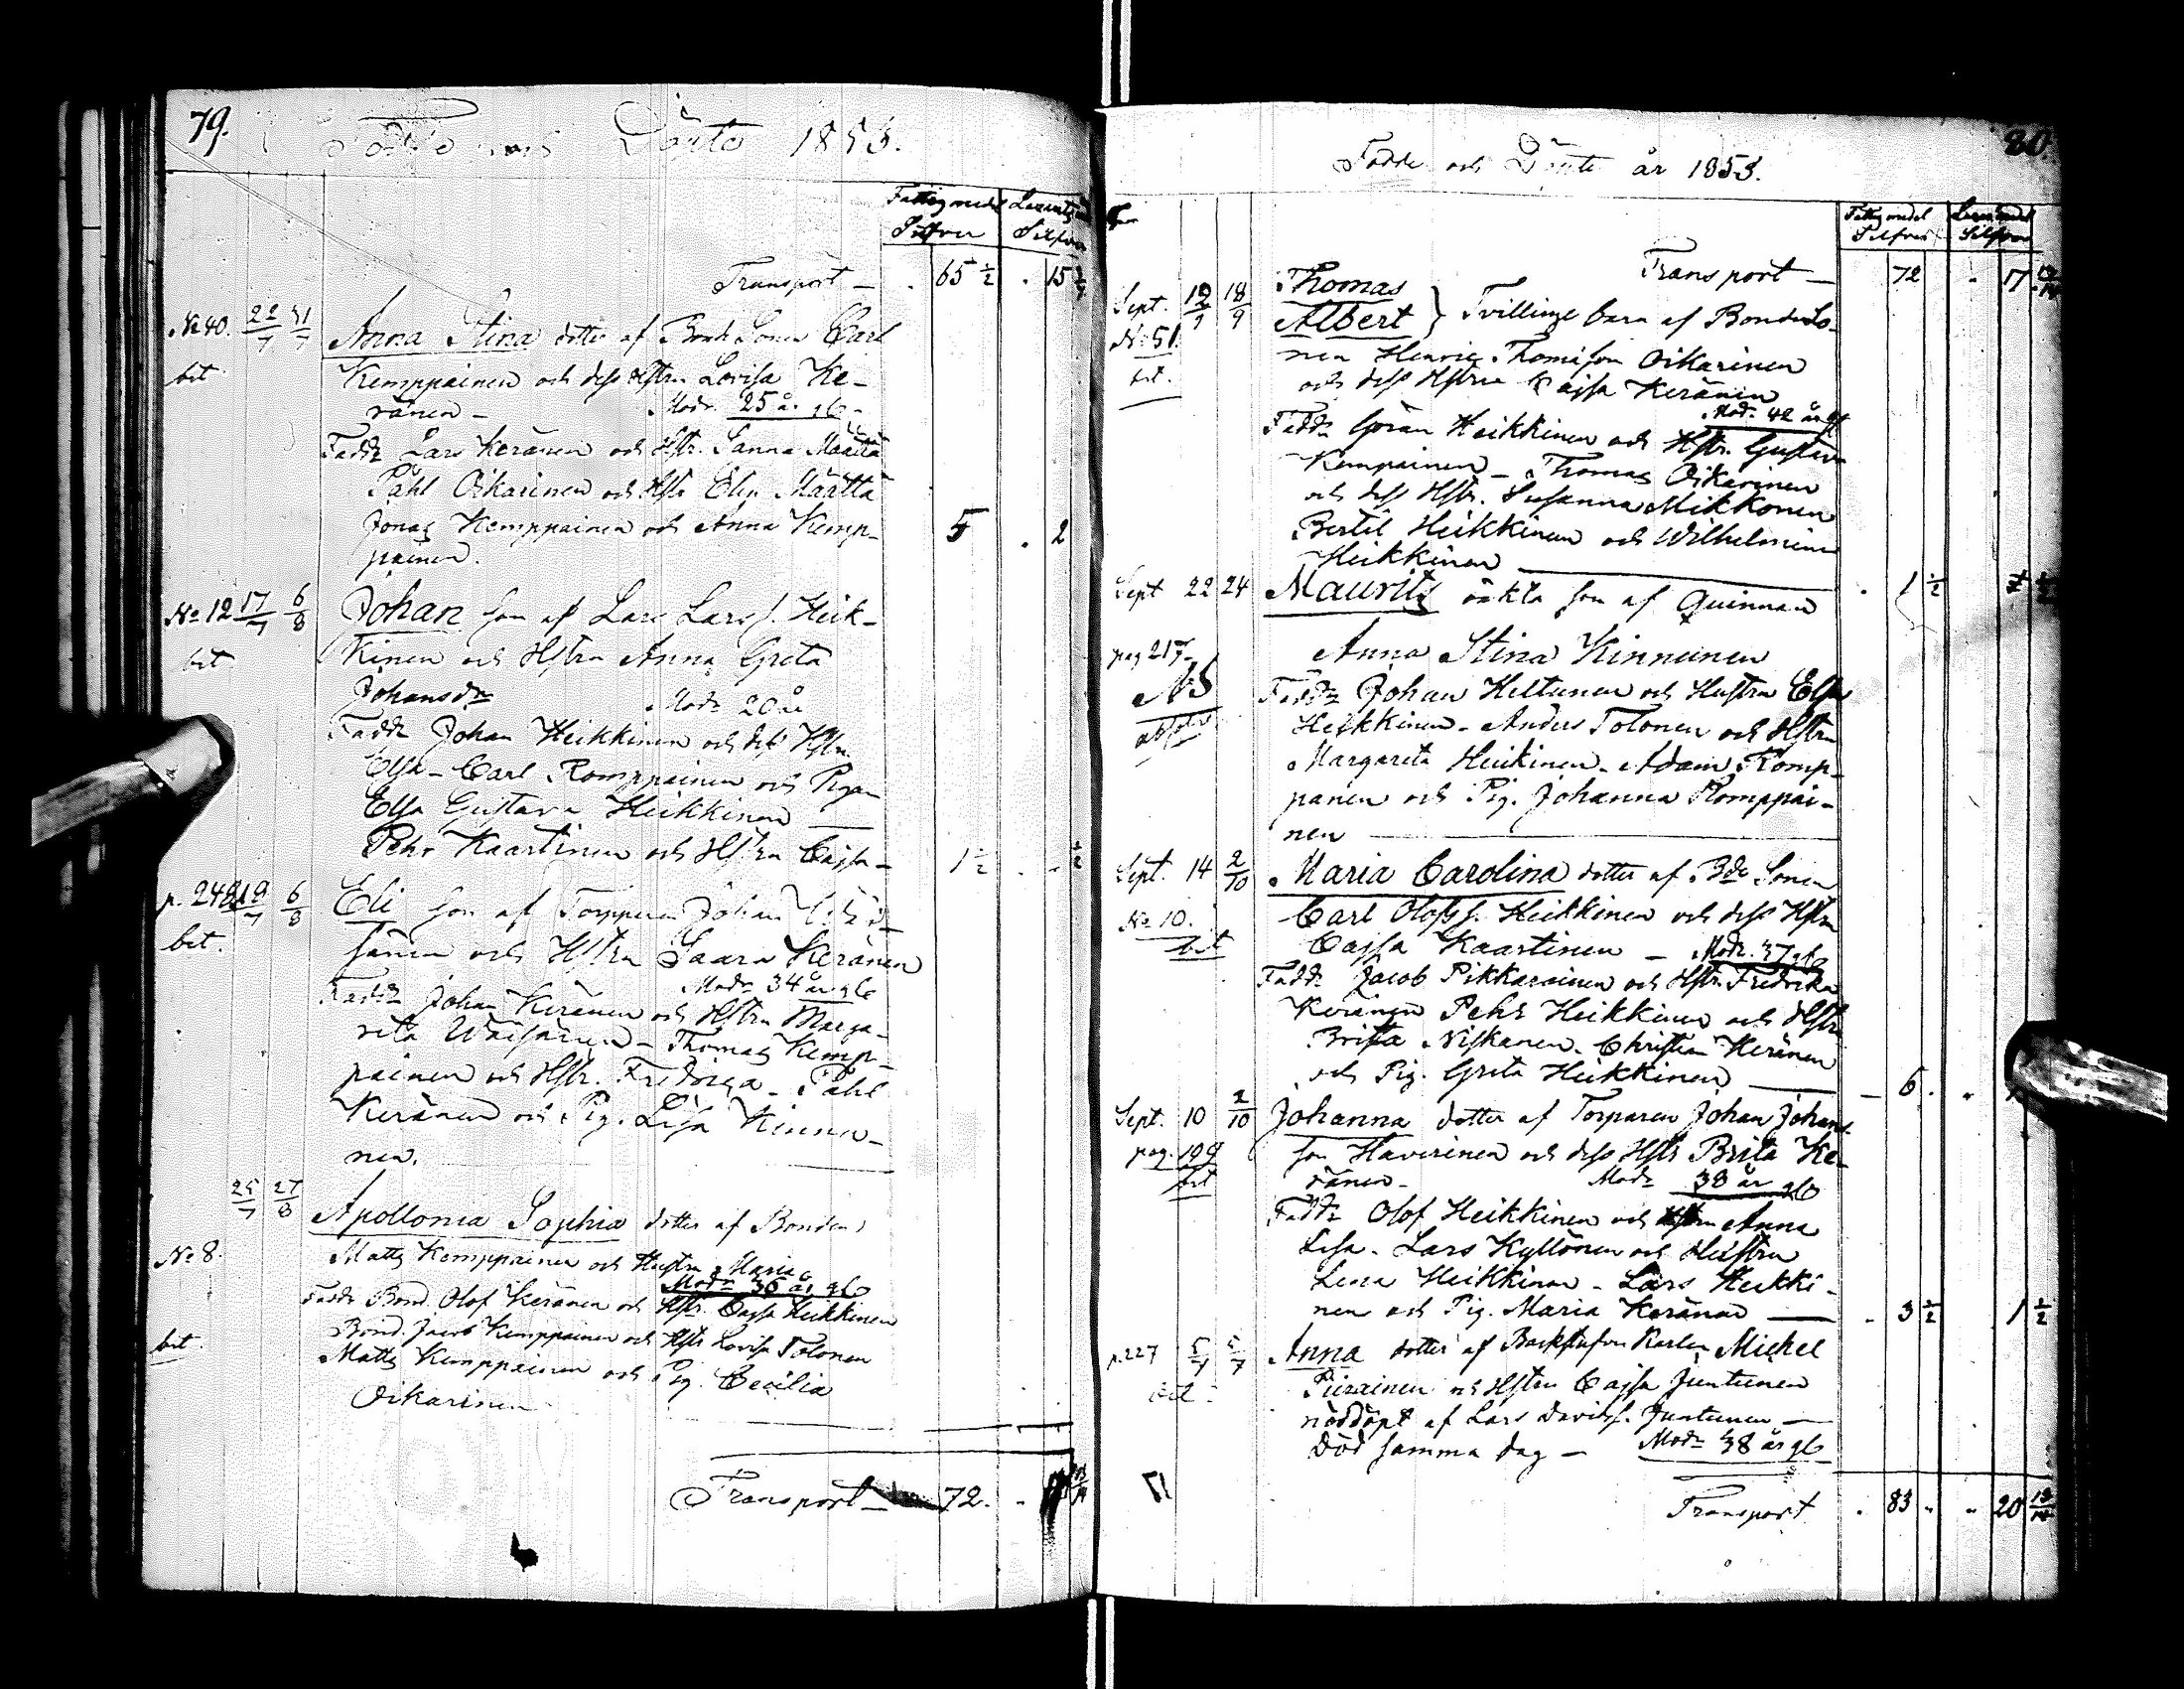 79.
Födde och Döpte 1853.
Fattig medel Lazarets
Silfver Silfver
Transport — . 65 1/2 . 15
No 40. 22/7 31/7 Anna Stina dotter af Bonde Sonen Carl
bet Kemppainen och dess Hstru Lovisa Ke-
ränen — Modr 25 år gl
Faddr Lars Keränen och Hstr. Sanna Määttä
Påhl Oikarinen och Hstr Elin Määttä
Jonas Kemppainen och Anna Kemp- 5 . 2
painen.
No 12 17/7 6/8 Johan son af Lars Larss. Heik-
bet kinen och Hstru Anna Greta
Johansdr Modr 20 år
Faddr Johan Heikkinen och dess Hstru
Elsa - Carl Romppainen och Pigan
Elsa Gustava Heikkinen —
Pehr Kaartinen och Hstru Cajsa - 1 1/2 . - 1/2
p. 248 19/7 6/8 Eli son af Torparen Johan
bet. sänen och Hstru Saara Keränen
Modr 34 år gl
Faddr Johan Keränen och Hstru Marga-
rita Väisänen - Thomas Kemp-
painen och Hstr. Fredriga - Påhl
Keränen och Pig. Lisa Kinnu-
nen.
25/7 27/8 Apollonia Sophia dotter af Bonden
No 8. Matts Kemppainen och Hustru Maria
Modr 36 år gl
Faddr Bond. Olof Keränen och Hstr. Cajsa Heikkinen
bet. Bond. Jacob Kemppainen och Hstr Lovisa Tolonen
Matts Kemppainen och Pig. Cecilia
Oikarinen
Transport — 72. .
80.
Födde och Döpte år 1853.
Fattig medel Lazar. medel
Silfver Silfver
Transport — 72 . 17
Sept. 12/9 18/9 Thomas
Albert } Tvillinge barn af Bonde So-
No 51. nen Henric Thomisson Oikarinen
bet. och dess Hstru Cajsa Keränen
Modr 42 år gl
Faddr Göran Heikkinen och Hstr. Gustava
Kempainen - Thomas Oikarinen
och dess Hstr. Susanna Mikkonen
Bertil Heikkinen och Wilhelmina
Heikkinen — . 1 1/2
Sept 22 24 Mauritz oäkta son af Quinnan
pag 217 Anna Stina Kinnunen
NB Faddr Johan Heltunen och Hustru Elsa
Heikkinen - Anders Tolonen och Hstru
Margareta Heikinen - Adam Romp-
panen och Pig. Johanna Romppai-
nen —
Sept. 14 2/10 Maria Carolina dotter af Bde Sonen
No 10. Carl Olofss. Heikkinen och dess Hstru
bet Cajsa Kaartinen — Modr. 37 gl
Faddr Jacob Pikkarainen och Hstr. Fredrika
Keränen Pehr Heikkinen och Hstru
Brita Niskanen - Christian Keränen
och Pig. Greta Heikkinen — - 6 .
Sept. 10 2/10 Johanna dotter af Torparen Johan Johans-
pag. 199 son Haverinen och dess Hstr Brita Ke-
bet ränen - Modr 38 år gl
Faddr Olof Heikkinen och Hstru Anna
Lisa - Lars Kyllönen och Hustru
Lena Heikkinen - Lars Heikki-
nen och Pig. Maria Keränen — . 3 1/2 1 1/2
p. 227 5/7 5/7 Anna dotter af Backstufvu Karlen Michel
Piirainen och Hstru Cajsa Juntunen
nöddöpt af Lars Davidss. Juntunen —
Död samma dag — Modr 38 år gl
Transport . 83 . . 20